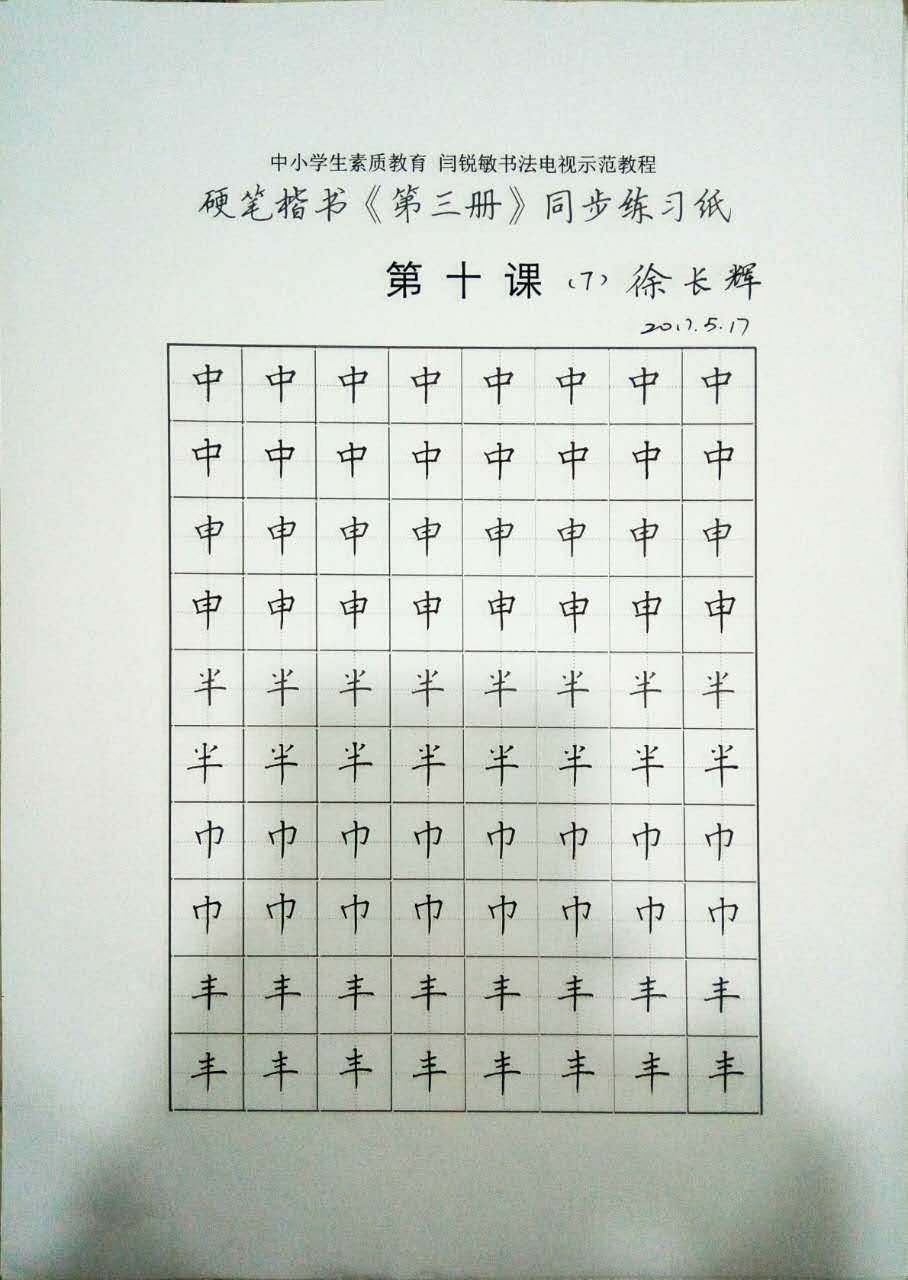 中小学生素质教育 闫锐敏书法电视示范教程
硬笔楷书《第三册》同步练习纸
第十课 (7) 徐长辉
2017.5.17
中 中 中 中 中 中 中 中
中 中 中 中 中 中 中 中
申 申 申 申 申 申 申 申
申 申 申 申 申 申 申 申
半 半 半 半 半 半 半 半
半 半 半 半 半 半 半 半
巾 巾 巾 巾 巾 巾 巾 巾
巾 巾 巾 巾 巾 巾 巾 巾
丰 丰 丰 丰 丰 丰 丰 丰
丰 丰 丰 丰 丰 丰 丰 丰